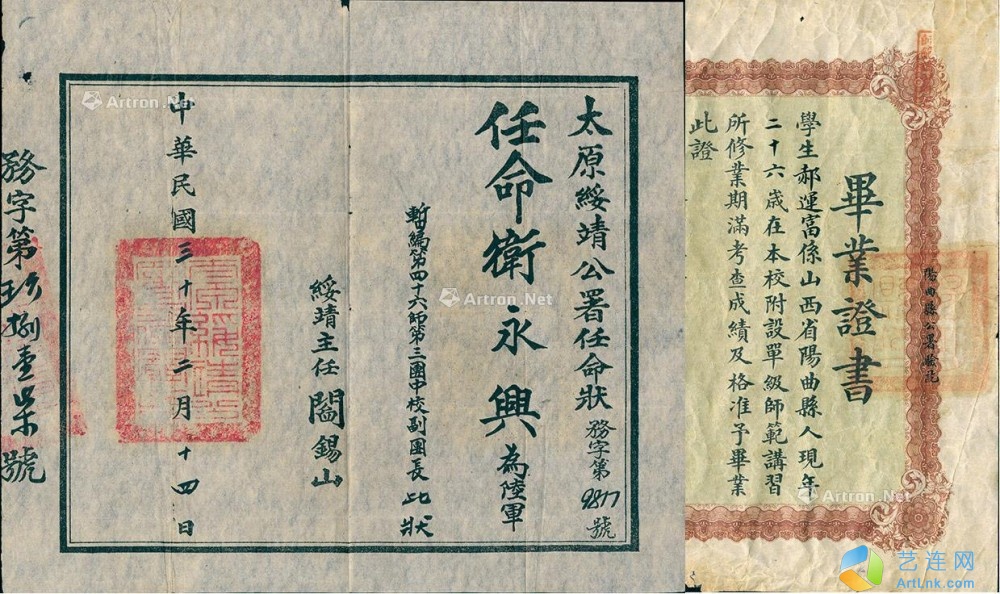 畢業證書
學生郝運富係山西省陽曲縣人現年
二十六歲在本校附設單級師範講習
所修業期滿考查成績及格准予畢業
此證
太原綏靖公署任命狀 務字第9817號
任命衛永興為陸軍
暫編第四十六師第三團中校副團長此狀
綏靖主任閻錫山
中華民國三十年二月十四日
務字第玖捌壹柒號
Artron.Net
Artron.Net
Artron.Net
Artron.Net
艺连网
ArtLnk.com